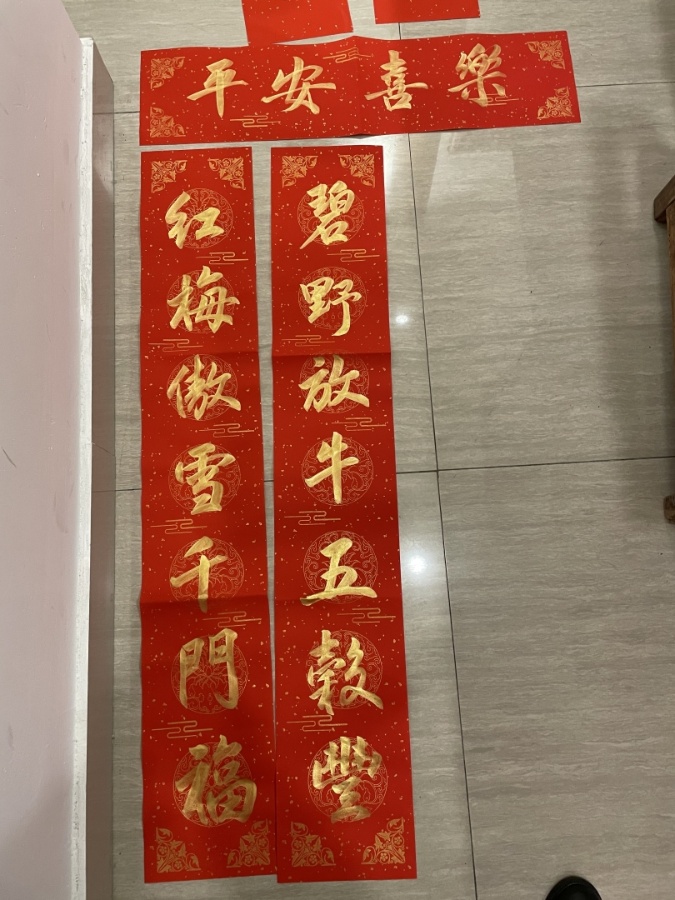 平安喜樂
红梅傲雪千門福
碧野放牛五穀豐